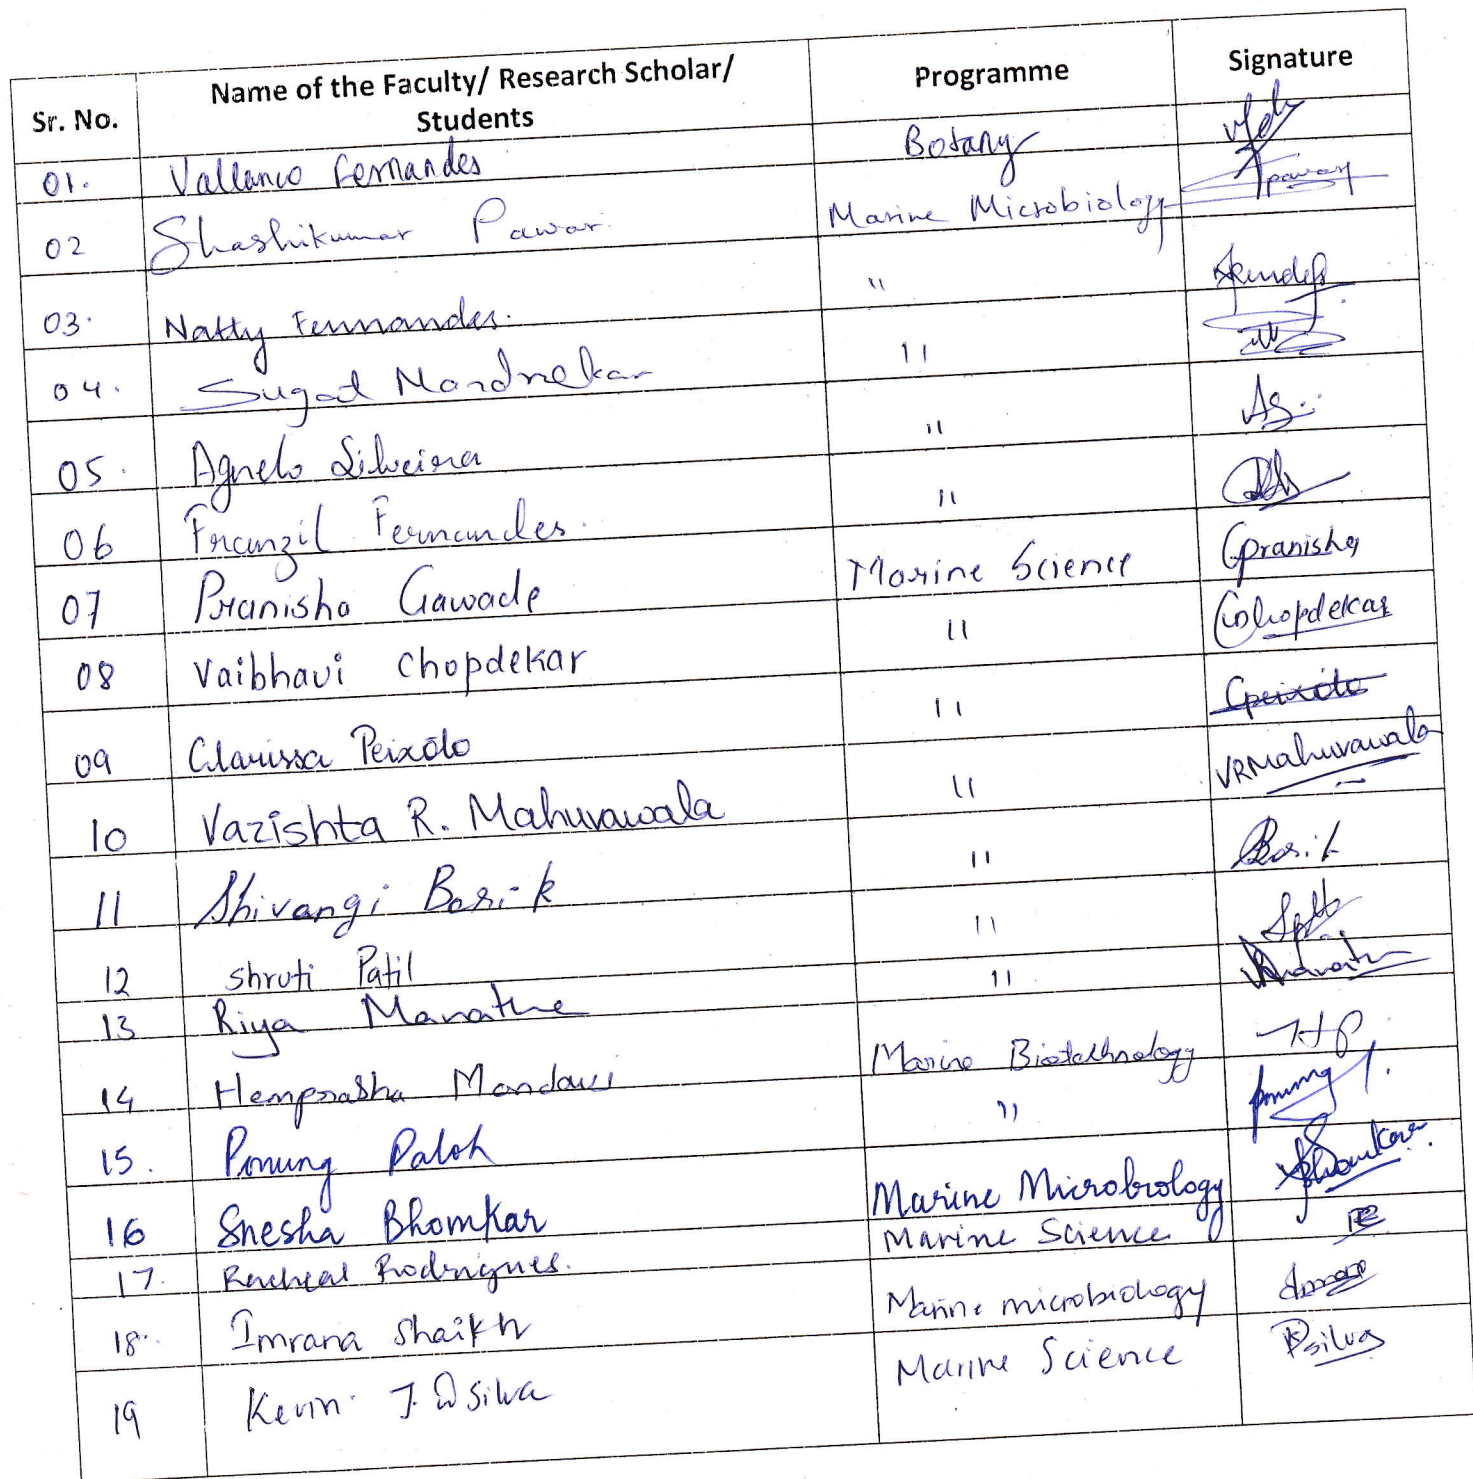 Sr. No. Name of the Faculty/ Research Scholar/ Students Programme Signature
01. Vallanco Fernandes Botany
02 Shashikumar Pawar. Marine Microbiology Pawar
03. Natty Fernandes. "
04. Sugat Mandrekar "
05. Agnelo Silveira " AS
06 Franzil Fernandes. "
07 Pranisha Gawade Marine Science Gpranisha
08 Vaibhavi Chopdekar " Chopdekar
09 Clarissa Peixoto " Cpeixoto
10 Vazishta R. Mahuvawala " VRMahuvawala
11 Shivangi Borik " Borik
12 Shruti Patil "
13 Riya Marathe "
14 Hemprabha Mandavi Marine Biotechnology
15. Ponung Paloh " ponung
16 Snesha Bhomkar Marine Microbiology Bhomkar
17. Racheal Rodrigues. Marine Science
18. Imrana Shaikh Marine microbiology
19 Kevin J. Dsilva Marine Science Dsilva